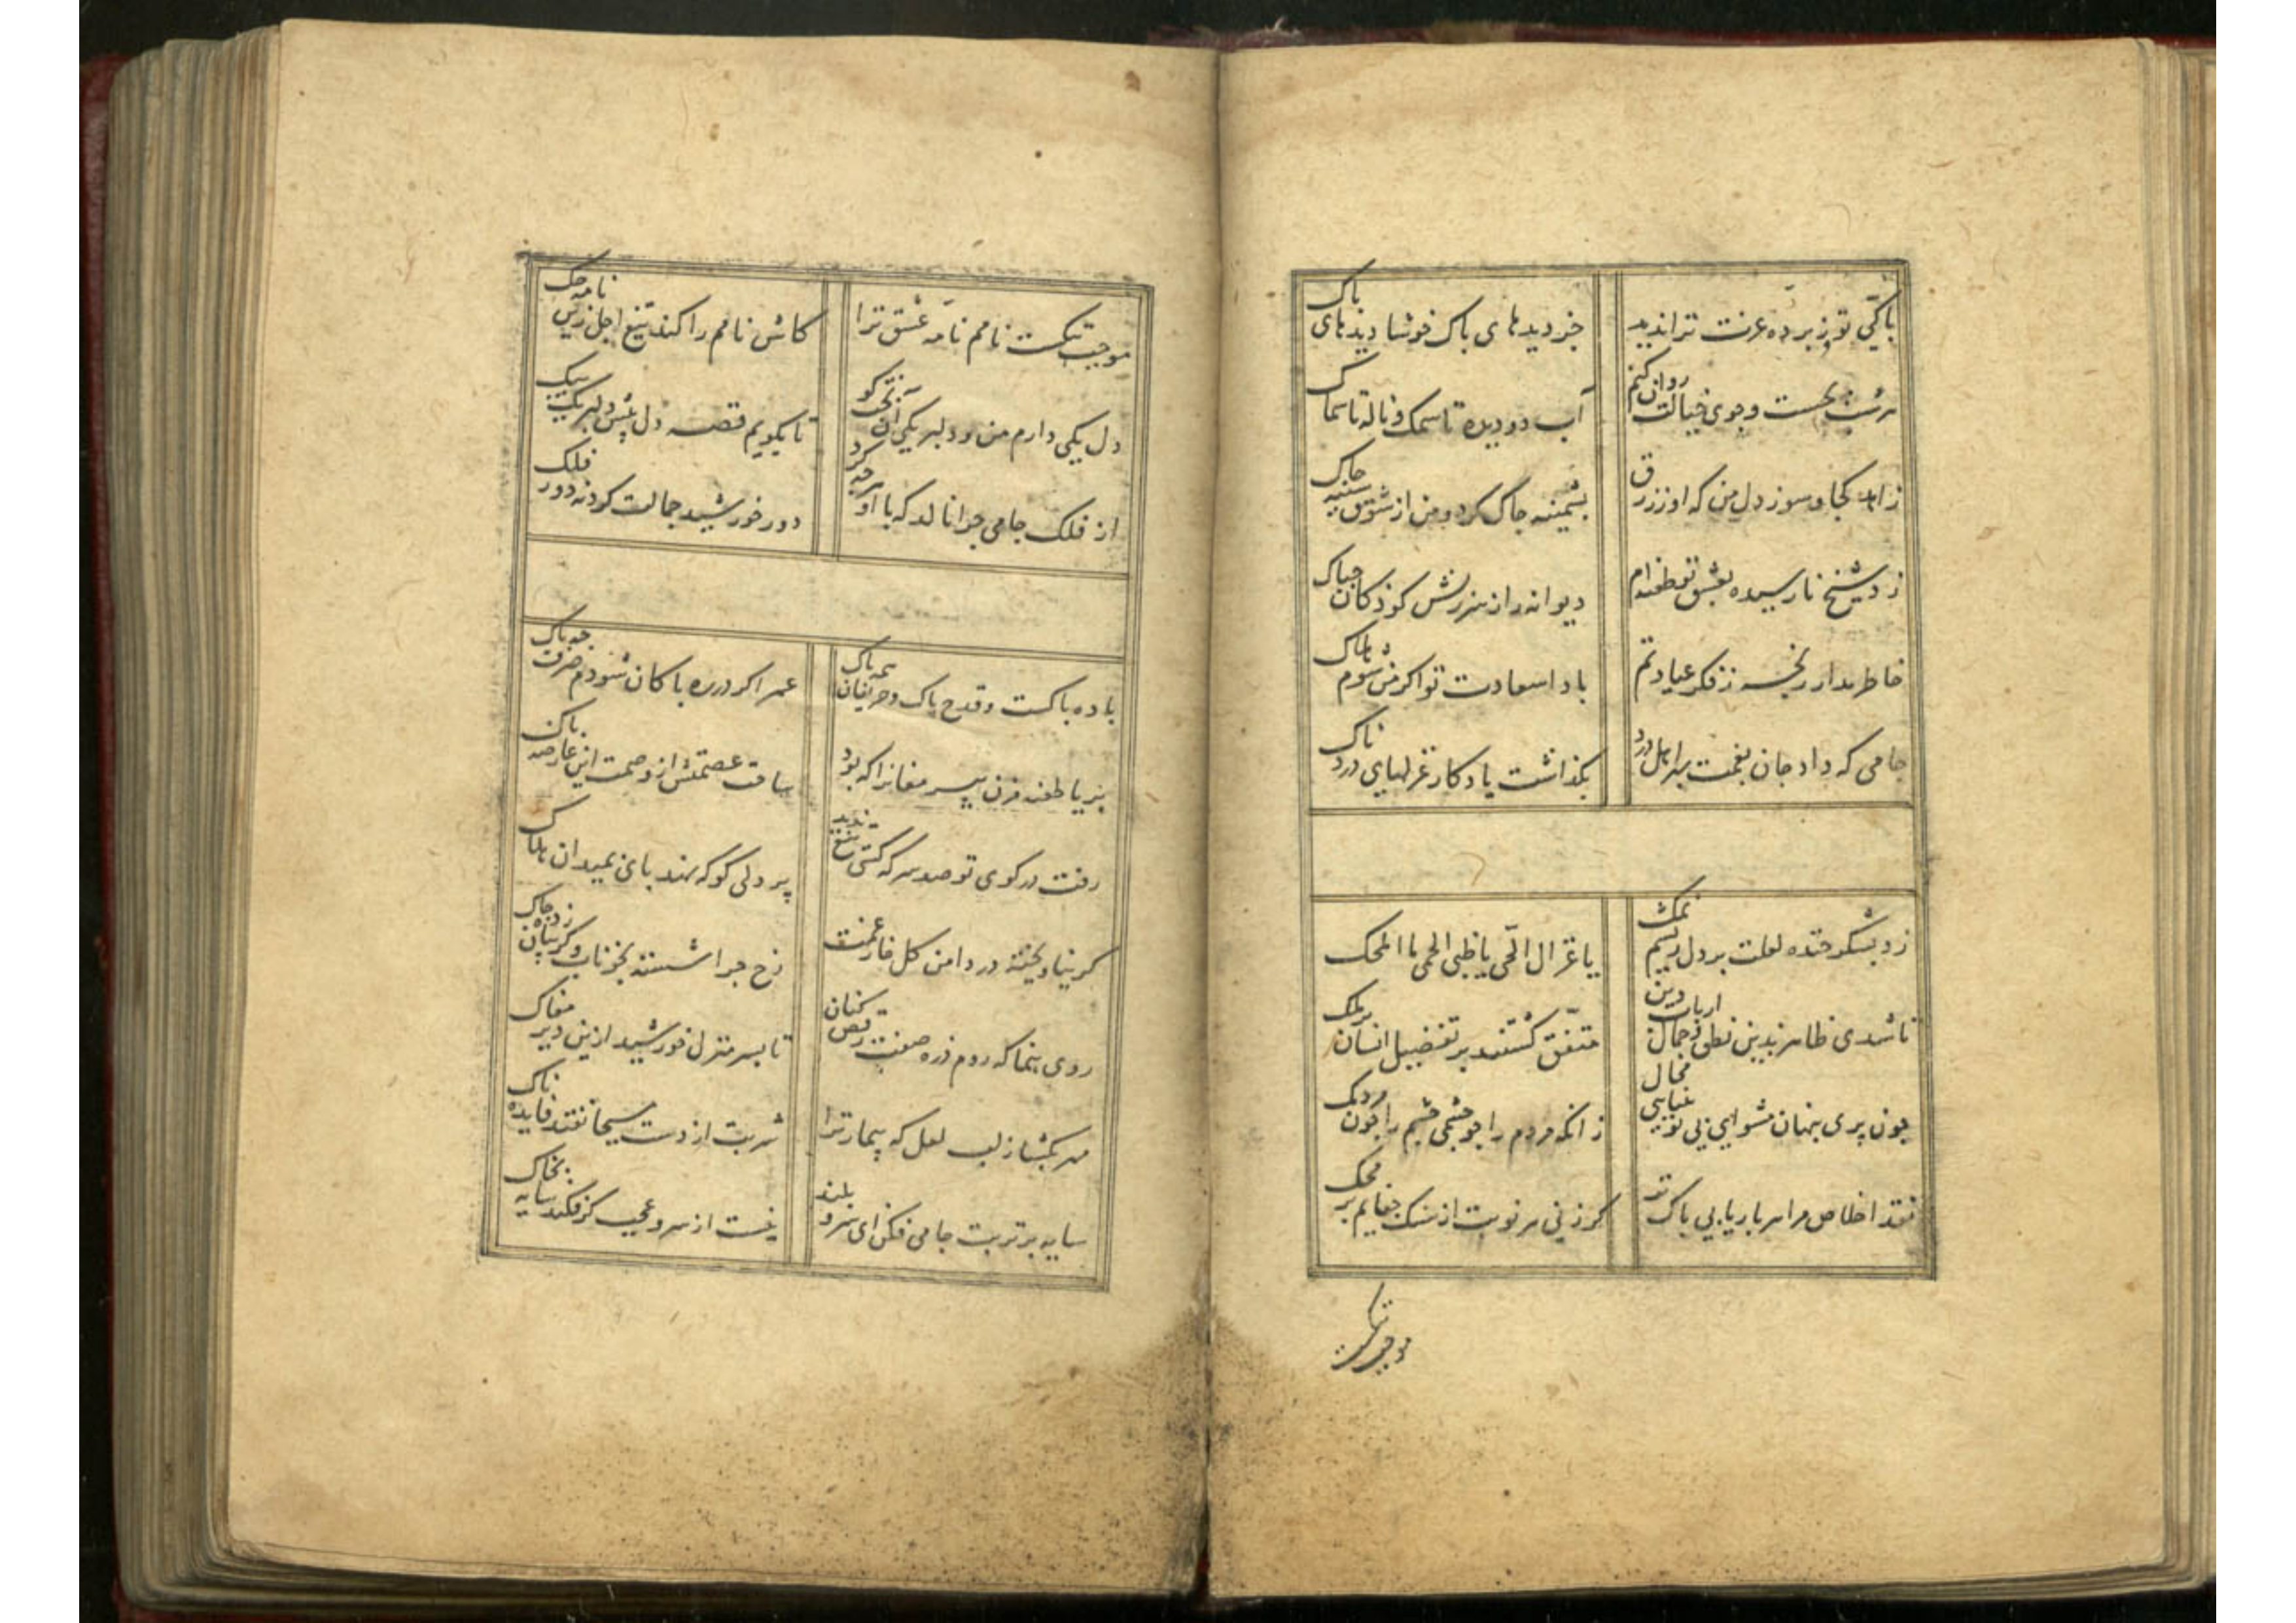 پاکی تو ز پرده عزت ترا ندید
جز دیدهای پاک خوشا دیدهای پاک
هر شب بجست و جوی خیالت روان کنم
آب دو دیده تا سمک و ناله تا سماک
زاهد کجا و سوز دل من که او ز زرق
پشمینه چاک کرد و من از شوق سینه چاک
زد شیخ نارسیده بعشق تو طعنه‌ام
دیوانه را ز سرزنش کودکان چه باک
خاطر مدار رنجه ز فکر عیادتم
بادا سعادت تو اگر من شوم هلاک
جامی که داد جان بغمت بهر اهل درد
بگذاشت یادگار غزلهای دردناک
زد بشکر خنده لعلت بر دل ریشم نمک
یا غزال الحی یا ظبی الحمی ما املحک
تا شدی ظاهر بدین نطق و جمال ارباب دین
متفق گشتند بر تفضیل انسان بر ملک
چون پری پنهان مشو ای بی تو بینایی محال
زانکه مردم را چو چشمی چشم را چون مردمک
نقد اخلاص مرا هر بار یابی پاک تر
گر زنی هر نوبت از سنگ جفایم بر محک
موجب تنگست
موجب تنگست نامم نامه عشق ترا
کاش نامم را کند تیغ اجل زین نامه حک
دل یکی دارم من و دلبر یکی آن بخت کو
تا بگویم قصه دل پیش دلبر یک بیک
از فلک جامی چرا نالد که با او هر چه کرد
دور خورشید جمالت کرد نه دور فلک
باده پاکست و قدح پاک و حریفان همه پاک
عمر اگر در ره پاکان شودم صرف چه باک
بریا طعنه مزن پیر مغانرا که بود
ساحت عصمتش از وصمت این عارضه پاک
رفت در کوی تو صد سر که کسی تیغ ندید
پر دلی کو که نهد پای بمیدان هلاک
گر نیاویخته در دامن گل خار غمت
رخ چرا شسته بخونابه و گریبان زده چاک
روی بنما که روم ذره صفت رقص کنان
تا بسر منزل خورشید ازین دیر مغاک
مهر بگشا ز لب لعل که بیمار ترا
شربت از دست مسیحا نفتد فایده ناک
سایه بر تربت جامی فکن ای سرو بلند
نیست از سرو عجب گر فکند سایه بخاک